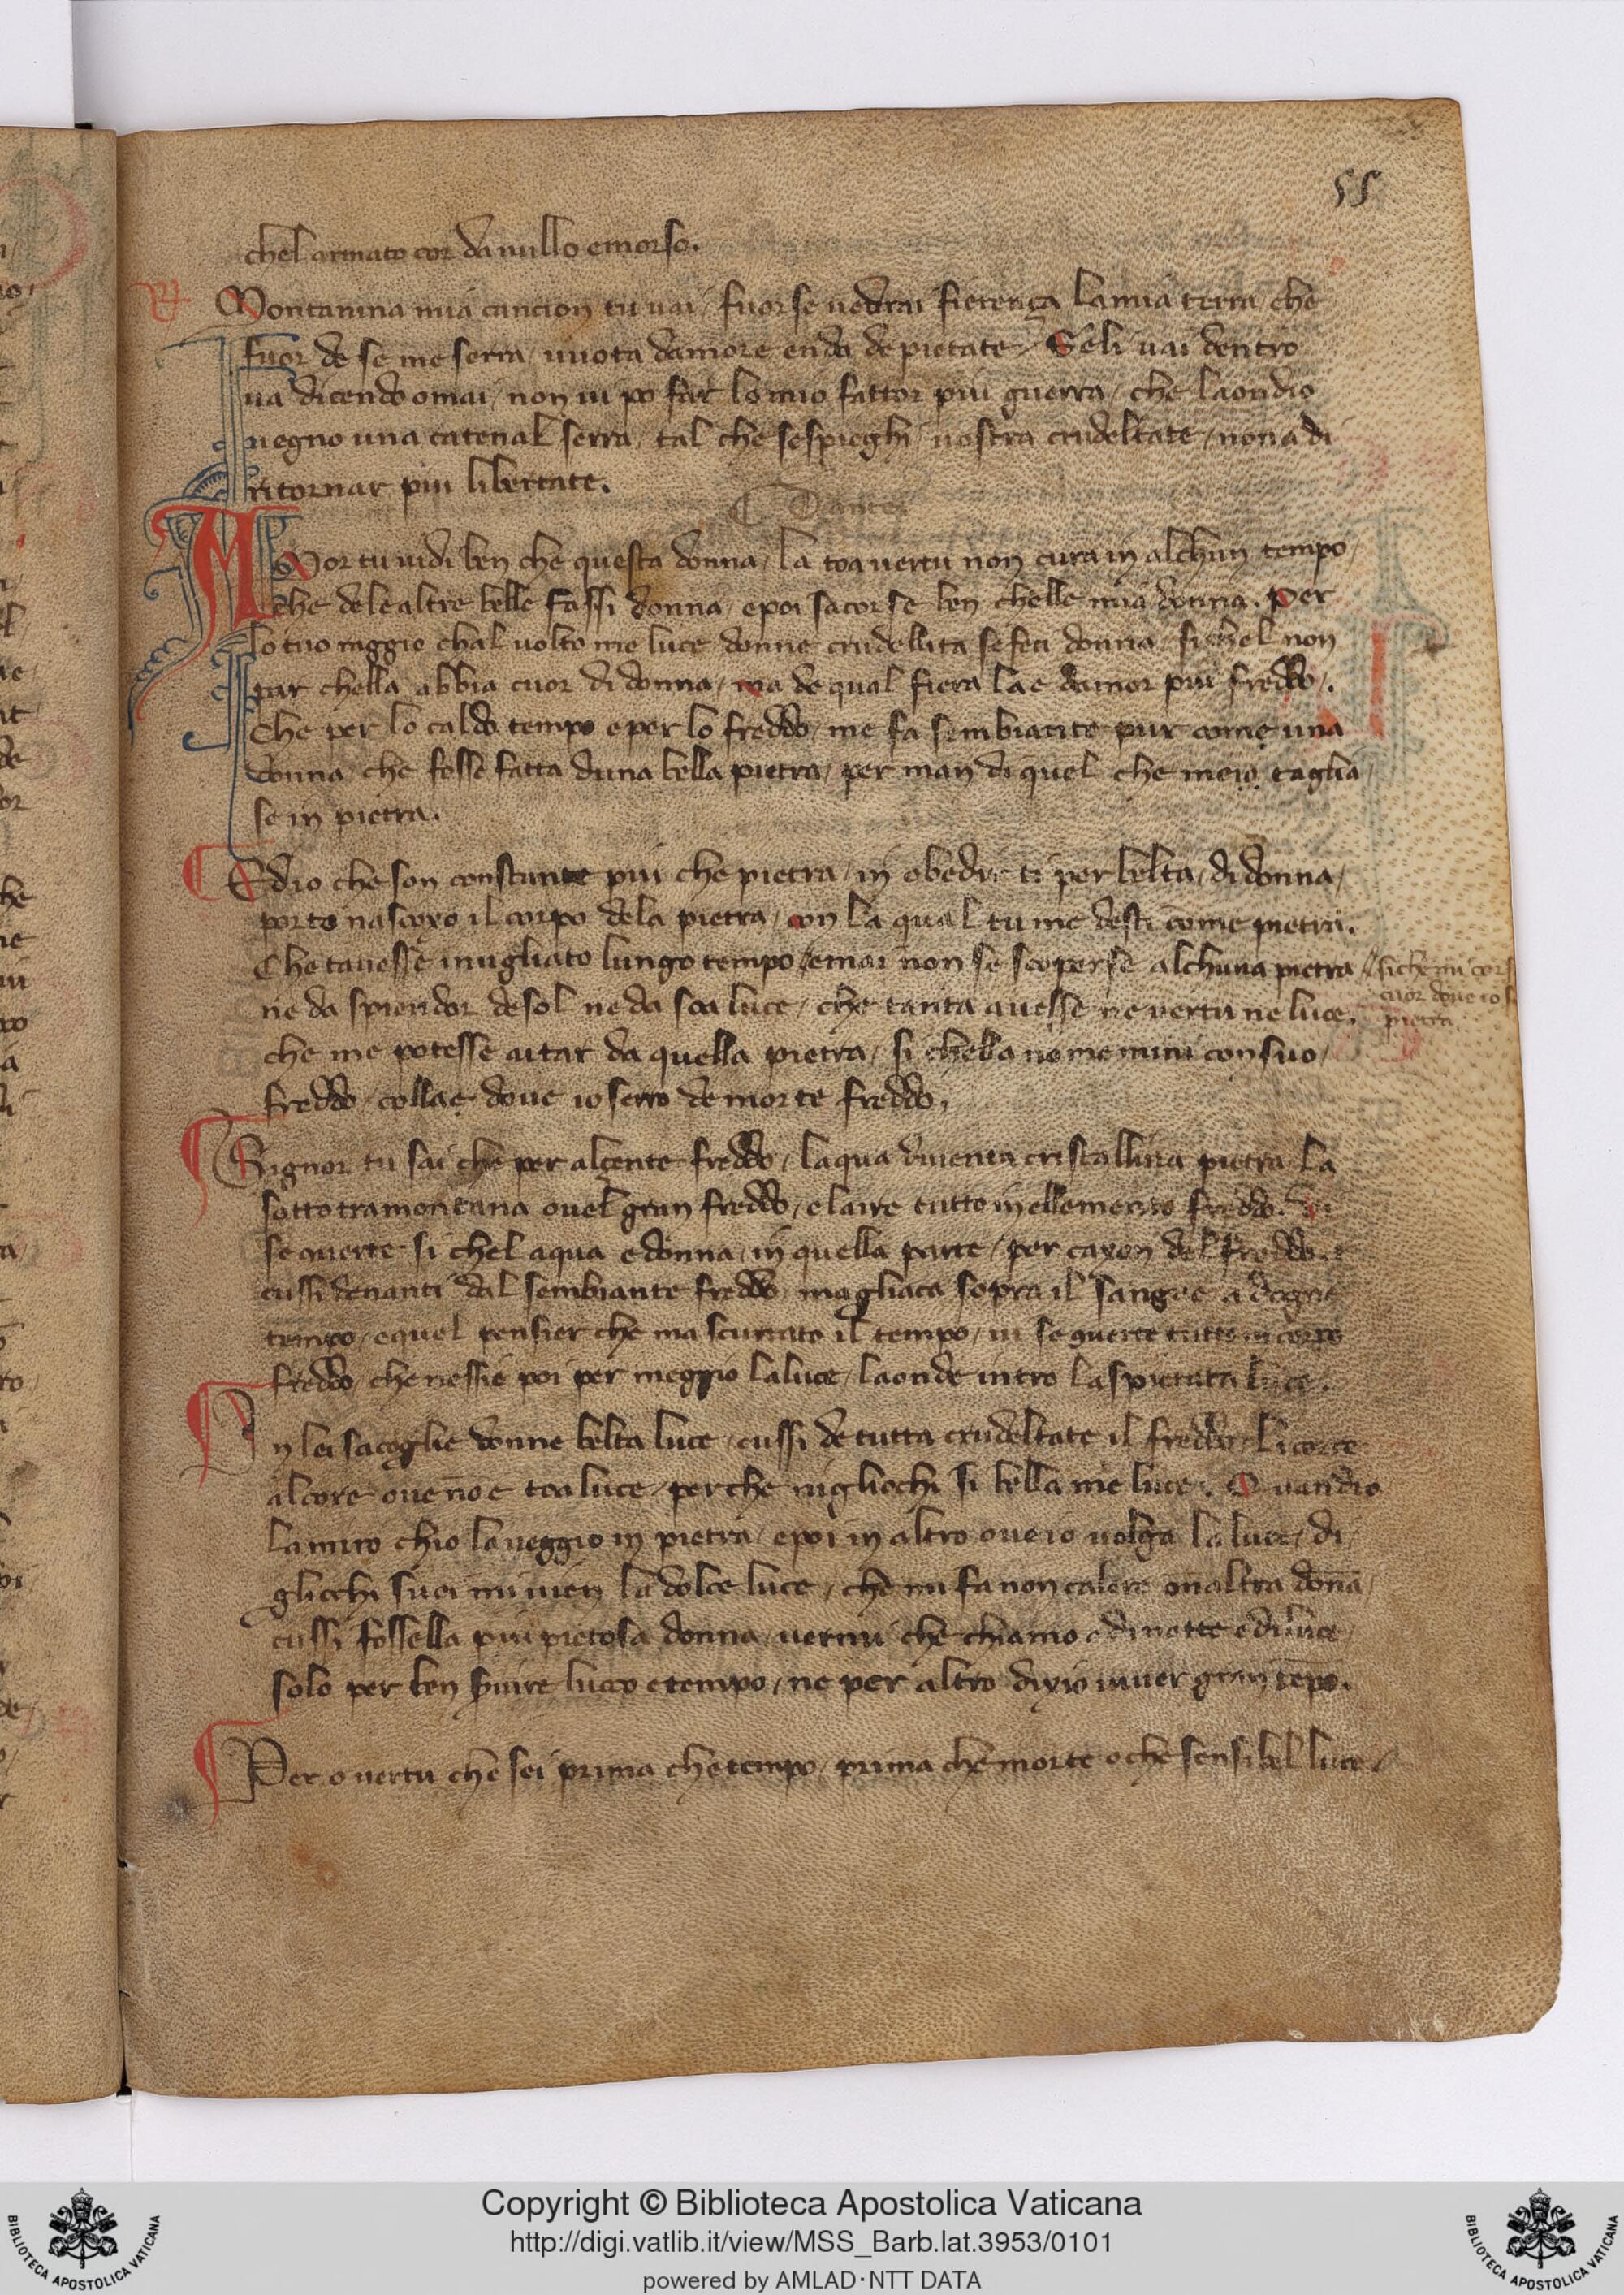 55
chel armato cor da nullo e morso.
Montanina mia cancion tu vai / fuor se vedrai fierença la mia terra / che
fuor de se me serra / vuota damore e nuda de pietate / Se li vai dentro
va dicendo omai / non vi po far lo mio fattor piu guerra / che laondio
vegno una catena l serra / tal che se spieghi vostra crudeltate / non a di
ritornar piu libertate.
Dante
Amor tu vidi ben che questa donna / la toa vertu non cura in alchun tempo /
che de le altre belle fassi donna / e poi sacorse ben chelle mia donna. Per
lo tuo raggio chal volto me luce donne crudellita se feci donna / si chel non
par chella abbia cuor di donna / ma de qual fiera lae damor piu freddo /.
Che per lo caldo tempo e per lo freddo / me fa sembiante pur come una
donna / che fosse fatta duna bella pietra / per man di quel che meio taglia /
se in pietra.
Edio che son constante piu che pietra / in obedirti per belta di donna /
porto nascoxo il corpo de la pietra / con la qual tu me desti come pietra.
Che tavesse invigliato lungo tempo / e mai non se scoperse alchuna pietra // si che mi cors
ne da spiendor de sol ne da soa luce / che tanta avesse ne vertu ne luce. cuor dove io s
pietra
che me potesse aitar da quella pietra / si chella no me mini con suo /
freddo / collae dove io serro de morte freddo.
Signor tu sai che per alçente freddo / laqua diventa cristallina pietra / La
sotto tramontana ovel gran freddo / e laire tutto in ellemento freddo. Vi
se querte si chel aqua e donna / in quella parte / per caxon del freddo.
cussi denanti dal sembiante freddo / magliaca sopra il sangue a dogne
tempo / e quel pensier che ma scurtato il tempo / vi se querte tutto in corpo
freddo / che nessie poi per meggio la luce / laonde intro la spietata luce.
In lei sacoglie donne belta luce / cussi de tutta crudeltate il freddo / li corre
al core ove nōe toa luce / perche nigliochi si bella me luce. Quandio
la miro chio la veggio in pietra / e poi in altro ove io volga la luce / di
gliochi suoi mi vien la dolce luce / che mi fa non calere onaltra dona /
cussi fossella piu pietosa donna / vermi che chiamo e di notte e di luce /
solo per ben svire luoco e tempo / ne per altro dixio viver gran tēpo.
Per o vertu che sei prima che tempo / prima che morte o che sensibel luce /
Copyright © Biblioteca Apostolica Vaticana
http://digi.vatlib.it/view/MSS_Barb.lat.3953/0101
powered by AMLAD·NTT DATA
BIBLIOTECA APOSTOLICA VATICANA
BIBLIOTECA APOSTOLICA VATICANA